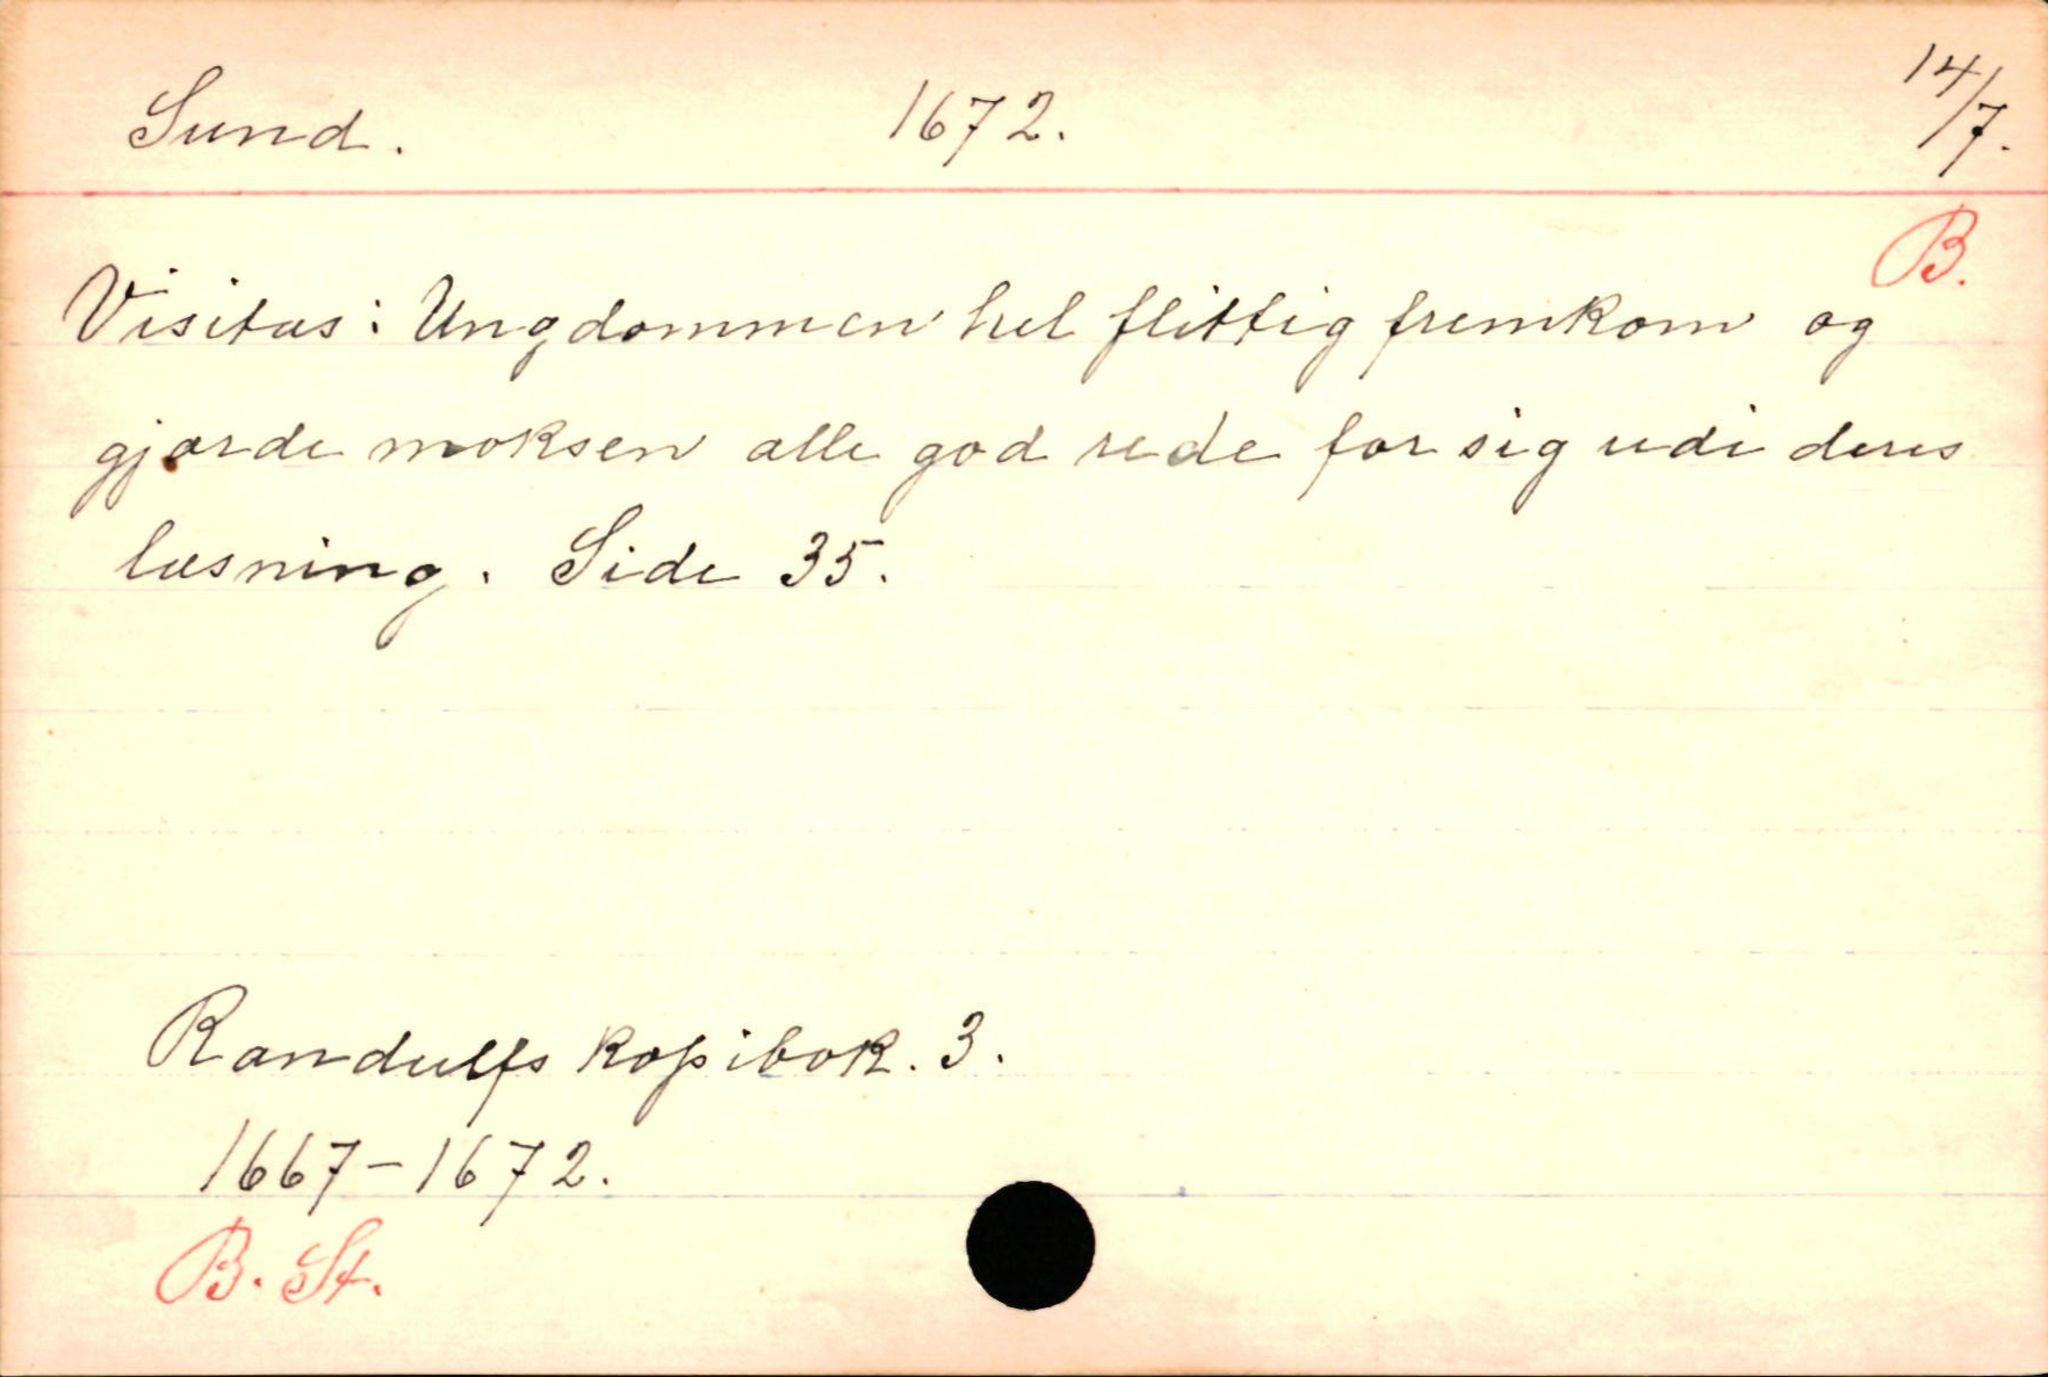 Sund. 1672. 14/7.
B.
Visitas: Ungdommen hel flittig fremkom og
gjorde moksen alle god rede for sig udi deres
læsning. Side 35.
Randulfs kopibok. 3.
1667-1672.
B. St.